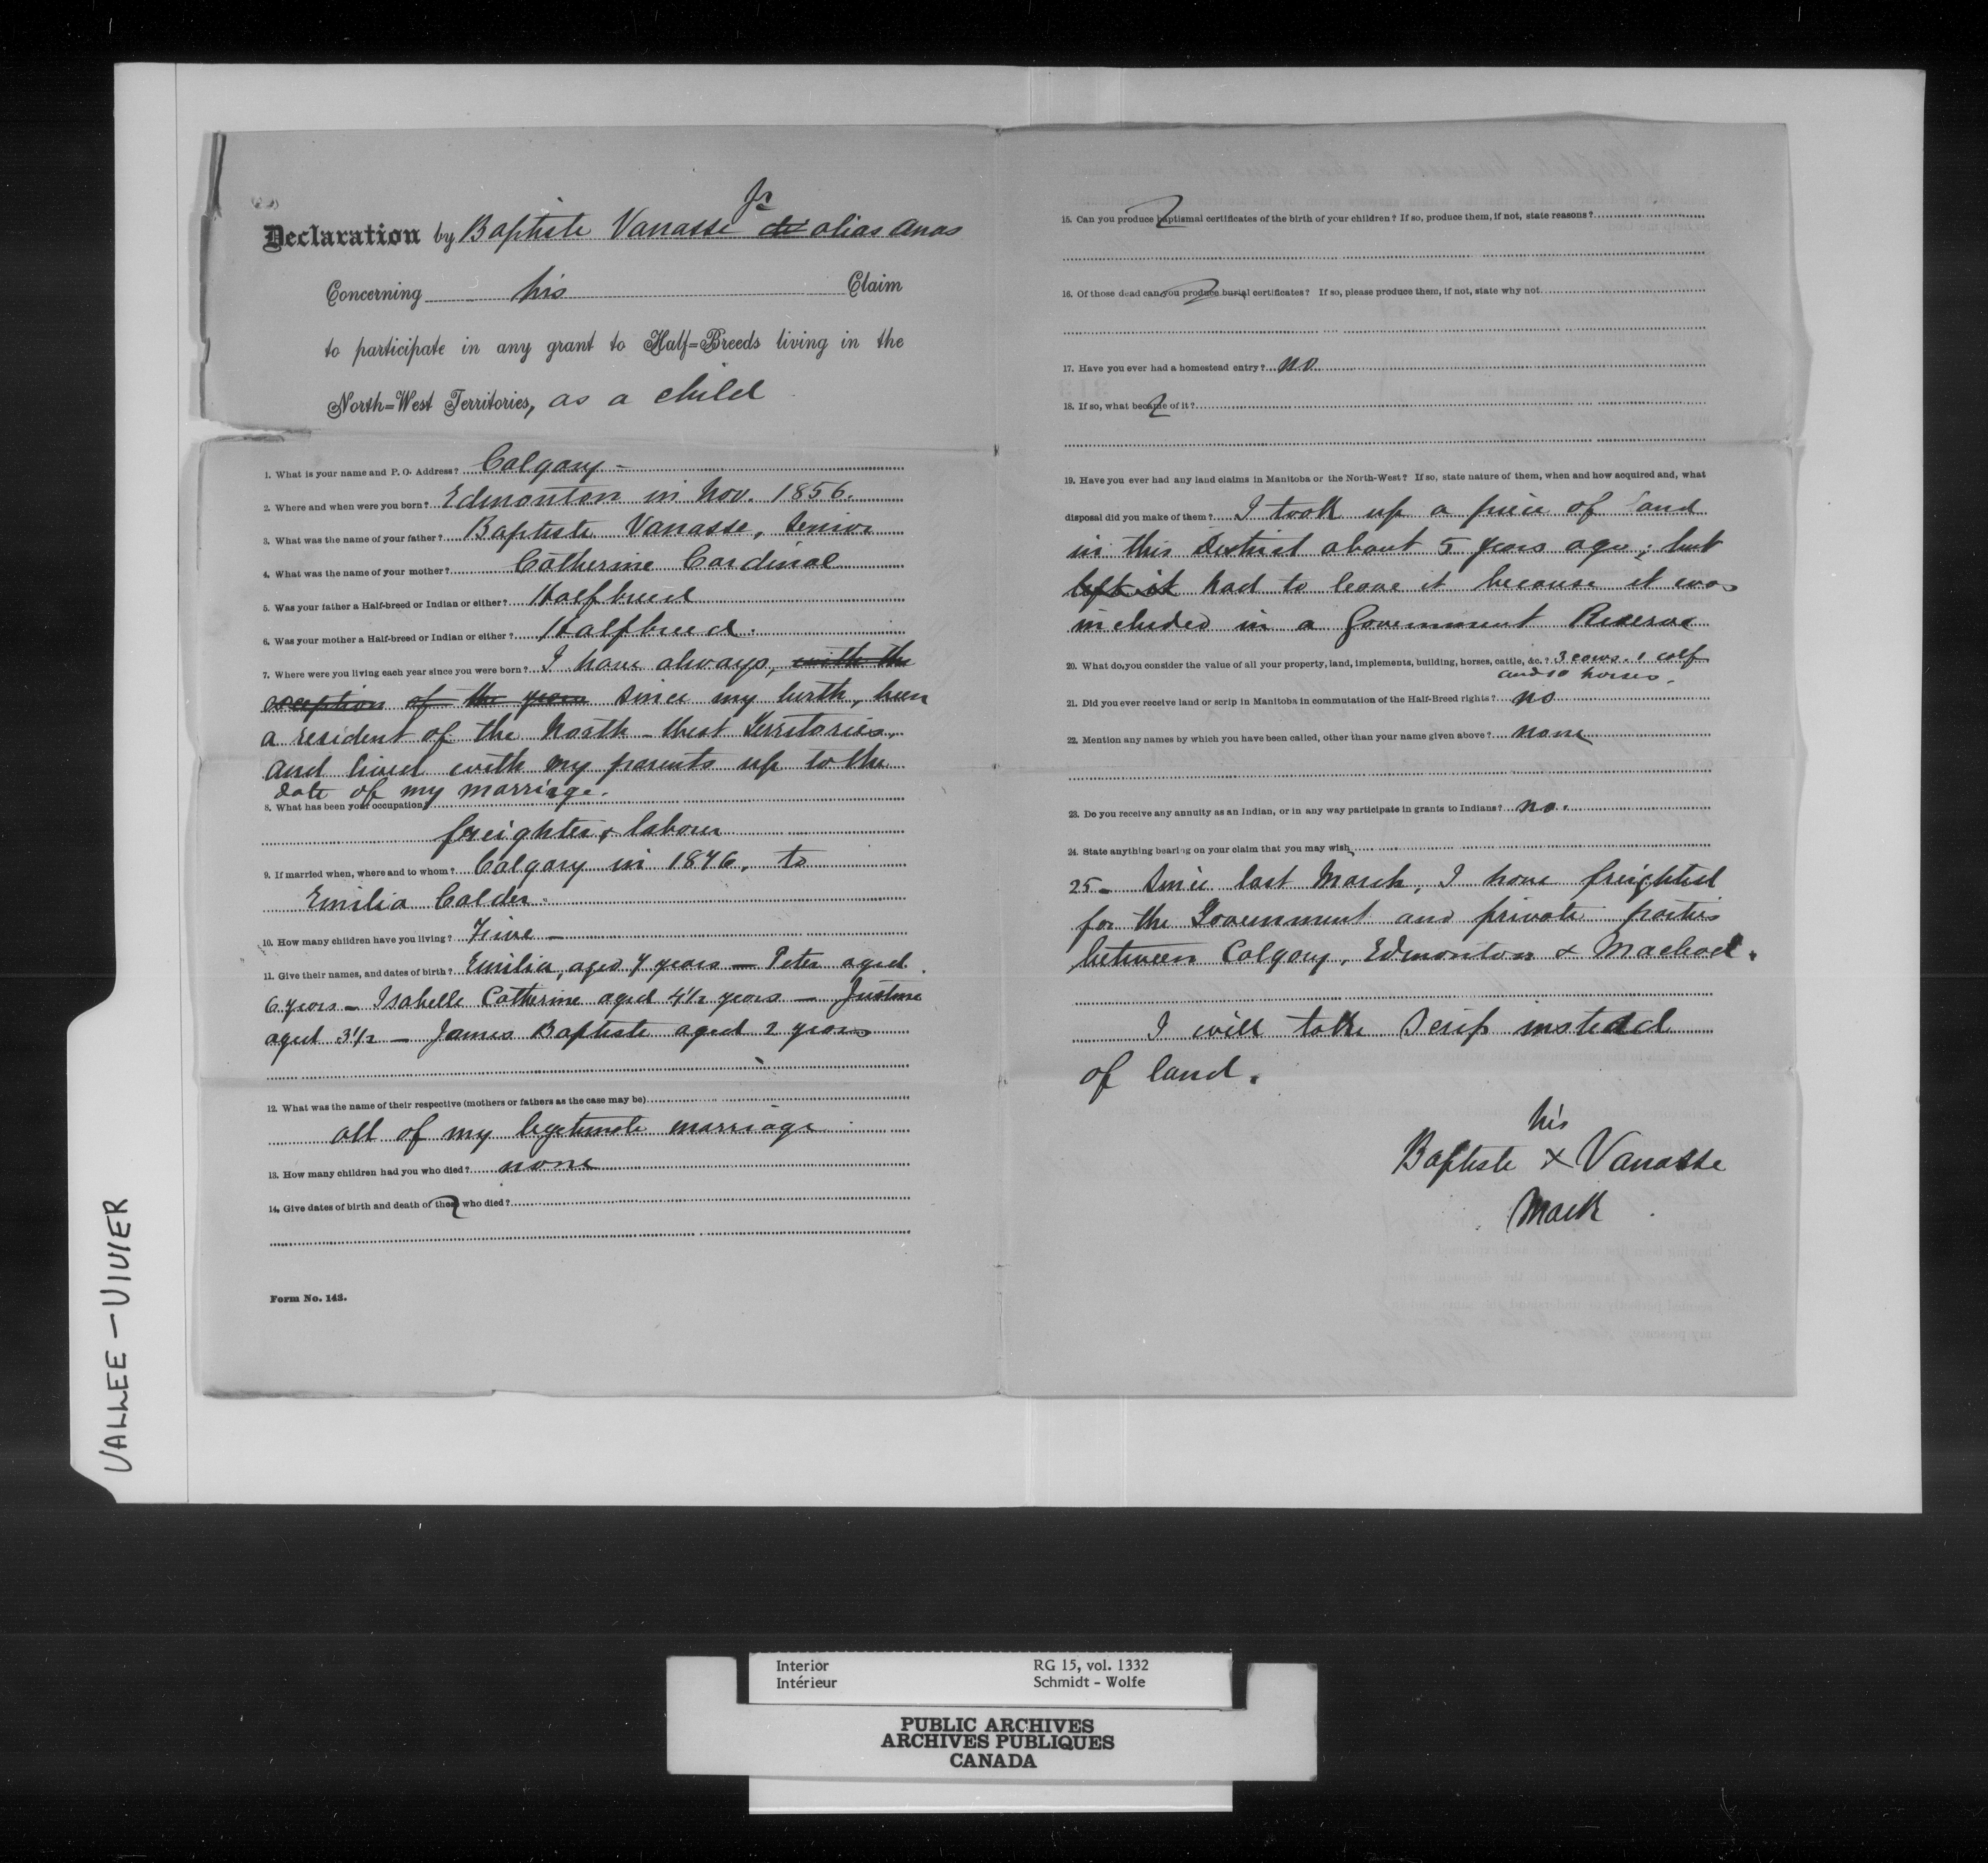 Declaration by Baptiste Vanasse Jr alias Anas
Concerning his Claim
to participate in any grant to Half=Breeds living in the
North=West Territories, as a child
1. What is your name and P. O. Address? Calgary -
2. Where and when were you born? Edmonton in Nov. 1856.
3. What was the name of your father? Baptiste Vanasse, Senior
4. What was the name of your mother? Catherine Cardinal
5. Was your father a Half-breed or Indian or either? Halfbreed
6. Was your mother a Half-breed or Indian or either? Halfbreed.
7. Where were you living each year since you were born? I have always, with the
exception of the years since my birth, been
a resident of the North-West Territories,
and lived with my parents up to the
date of my marriage.
8. What has been your occupation?
freighter & labour
9. If married when, where and to whom? Calgary in 1876, to
Emilia Calder.
10. How many children have you living? Five -
11. Give their names, and dates of birth? Emilia, aged 7 years — Peter aged
6 years - Isabelle Catherine aged 4½ years — Justine
aged 3½ — James Baptiste aged 2 years
12. What was the name of their respective (mothers or fathers as the case may be)
all of my legitimate marriage
13. How many children had you who died? none
14. Give dates of birth and death of those who died?
Form No. 143.
15. Can you produce baptismal certificates of the birth of your children? If so, produce them, if not, state reasons?
16. Of those dead can you produce burial certificates? If so, please produce them, if not, state why not
17. Have you ever had a homestead entry? no
18. If so, what became of it?
19. Have you ever had any land claims in Manitoba or the North-West? If so, state nature of them, when and how acquired and, what
disposal did you make of them? I took up a piece of land
in this District about 5 years ago; but
left it had to leave it because it was
included in a Government Reserve
20. What do you consider the value of all your property, land, implements, building, horses, cattle, &c.? 3 cows. 1 calf
and 10 horses.
21. Did you ever receive land or scrip in Manitoba in commutation of the Half-Breed rights? no
22. Mention any names by which you have been called, other than your name given above? none
23. Do you receive any annuity as an Indian, or in any way participate in grants to Indians? no.
24. State anything bearing on your claim that you may wish
25 - Since last March, I have freighted
for the Government and private parties
between Calgary, Edmonton & Macleod.
I will take Scrip instead
of land.
his
Baptiste X Vanasse
Mark
VALLEE - VIVIER
Interior RG 15, vol. 1332
Intérieur Schmidt - Wolfe
PUBLIC ARCHIVES
ARCHIVES PUBLIQUES
CANADA